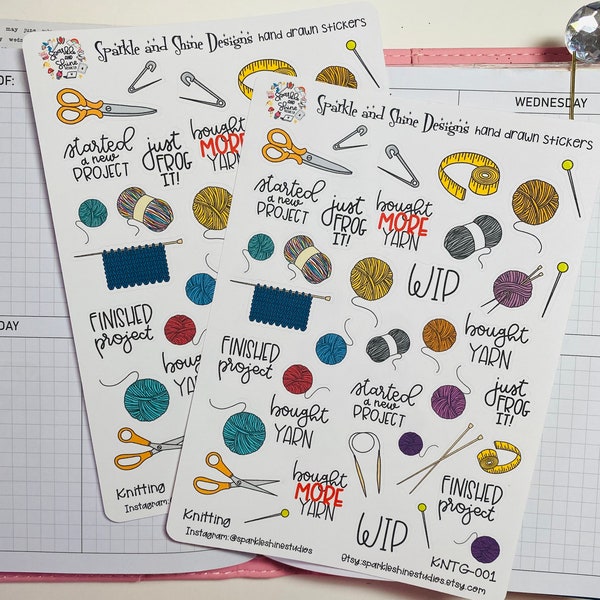 may june
wedne
OF:
WEDNESDAY
DAY
Sparkle and Shine Designs hand drawn stickers
Sparkle
AND
Shine
started
a new
PROJECT
just
FROG
IT!
bought
MORE
YARN
FINISHED
project
bought
YARN
Knitting
Instagram:
Sparkle and Shine Designs hand drawn stickers
Sparkle
AND
Shine
started
a new
PROJECT
just
FROG
IT!
bought
MORE
YARN
WIP
FINISHED
project
bought
YARN
started
a new
PROJECT
just
FROG
IT!
bought
YARN
bought
MORE
YARN
WIP
FINISHED
project
Knitting
Instagram: @sparkleshinestudios
KNTG-001
Etsy: sparkleshinestudios.etsy.com